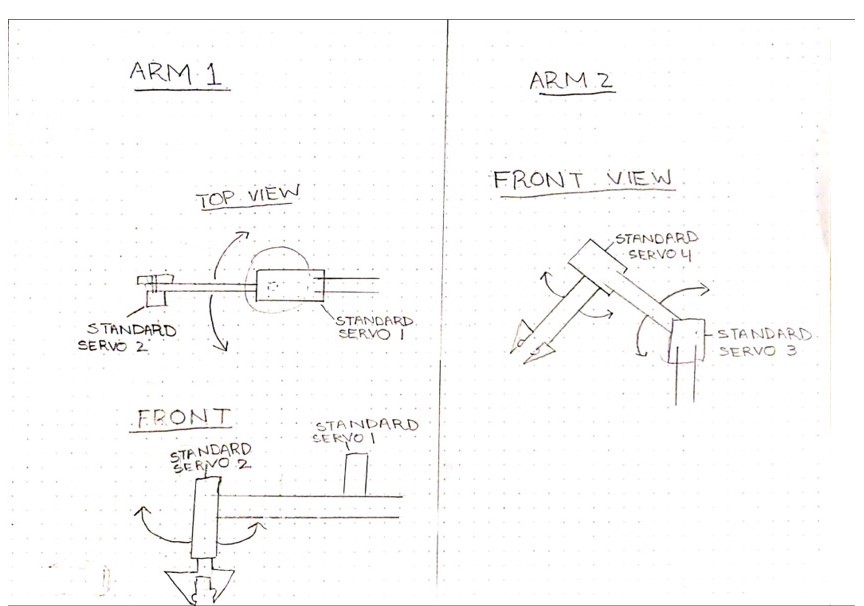 ARM 1
TOP VIEW
STANDARD
SERVO 2
STANDARD
SERVO 1
FRONT
STANDARD
SERVO 2
STANDARD
SERVO 1
ARM 2
FRONT VIEW
STANDARD
SERVO 4
STANDARD
SERVO 3